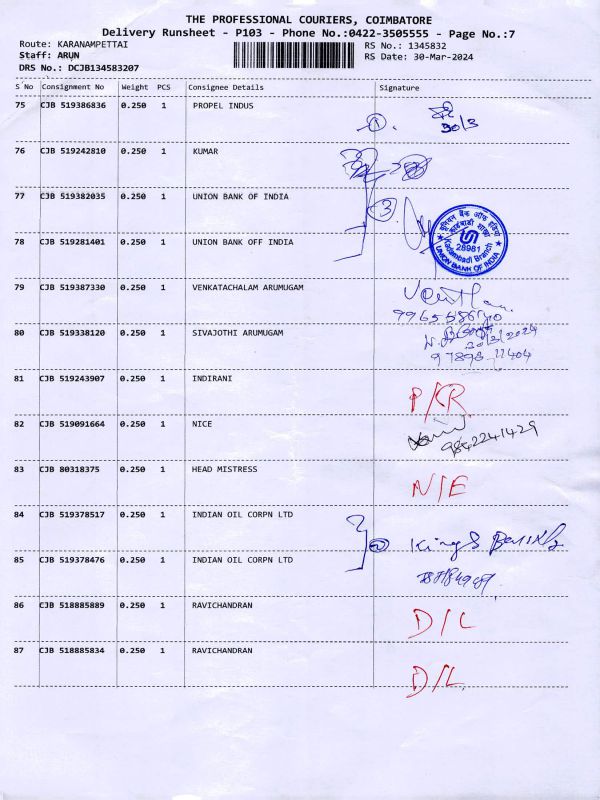 THE PROFESSIONAL COURIERS, COIMBATORE
Delivery Runsheet - P103 - Phone No.:0422-3505555 - Page No.:7
Route: KARANAMPETTAI
RS No.: 1345832
Staff: ARUN
RS Date: 30-Mar-2024
DRS No.: DCJB134583207
S No Consignment No Weight PCS Consignee Details Signature
75 CJB 519386836 0.250 1 PROPEL INDUS
1. 30/3
76 CJB 519242810 0.250 1 KUMAR
77 CJB 519382035 0.250 1 UNION BANK OF INDIA
3
यूनियन बैंक ऑफ इंडिया
28981
Branch
UNION BANK OF INDIA
78 CJB 519281401 0.250 1 UNION BANK OFF INDIA
79 CJB 519387330 0.250 1 VENKATACHALAM ARUMUGAM
80 CJB 519338120 0.250 1 SIVAJOTHI ARUMUGAM
81 CJB 519243907 0.250 1 INDIRANI
P/KR
82 CJB 519091664 0.250 1 NICE
9842241429
83 CJB 80318375 0.250 1 HEAD MISTRESS
N/E
84 CJB 519378517 0.250 1 INDIAN OIL CORPN LTD
2 King S
85 CJB 519378476 0.250 1 INDIAN OIL CORPN LTD
86 CJB 518885889 0.250 1 RAVICHANDRAN
D/L
87 CJB 518885834 0.250 1 RAVICHANDRAN
D/L